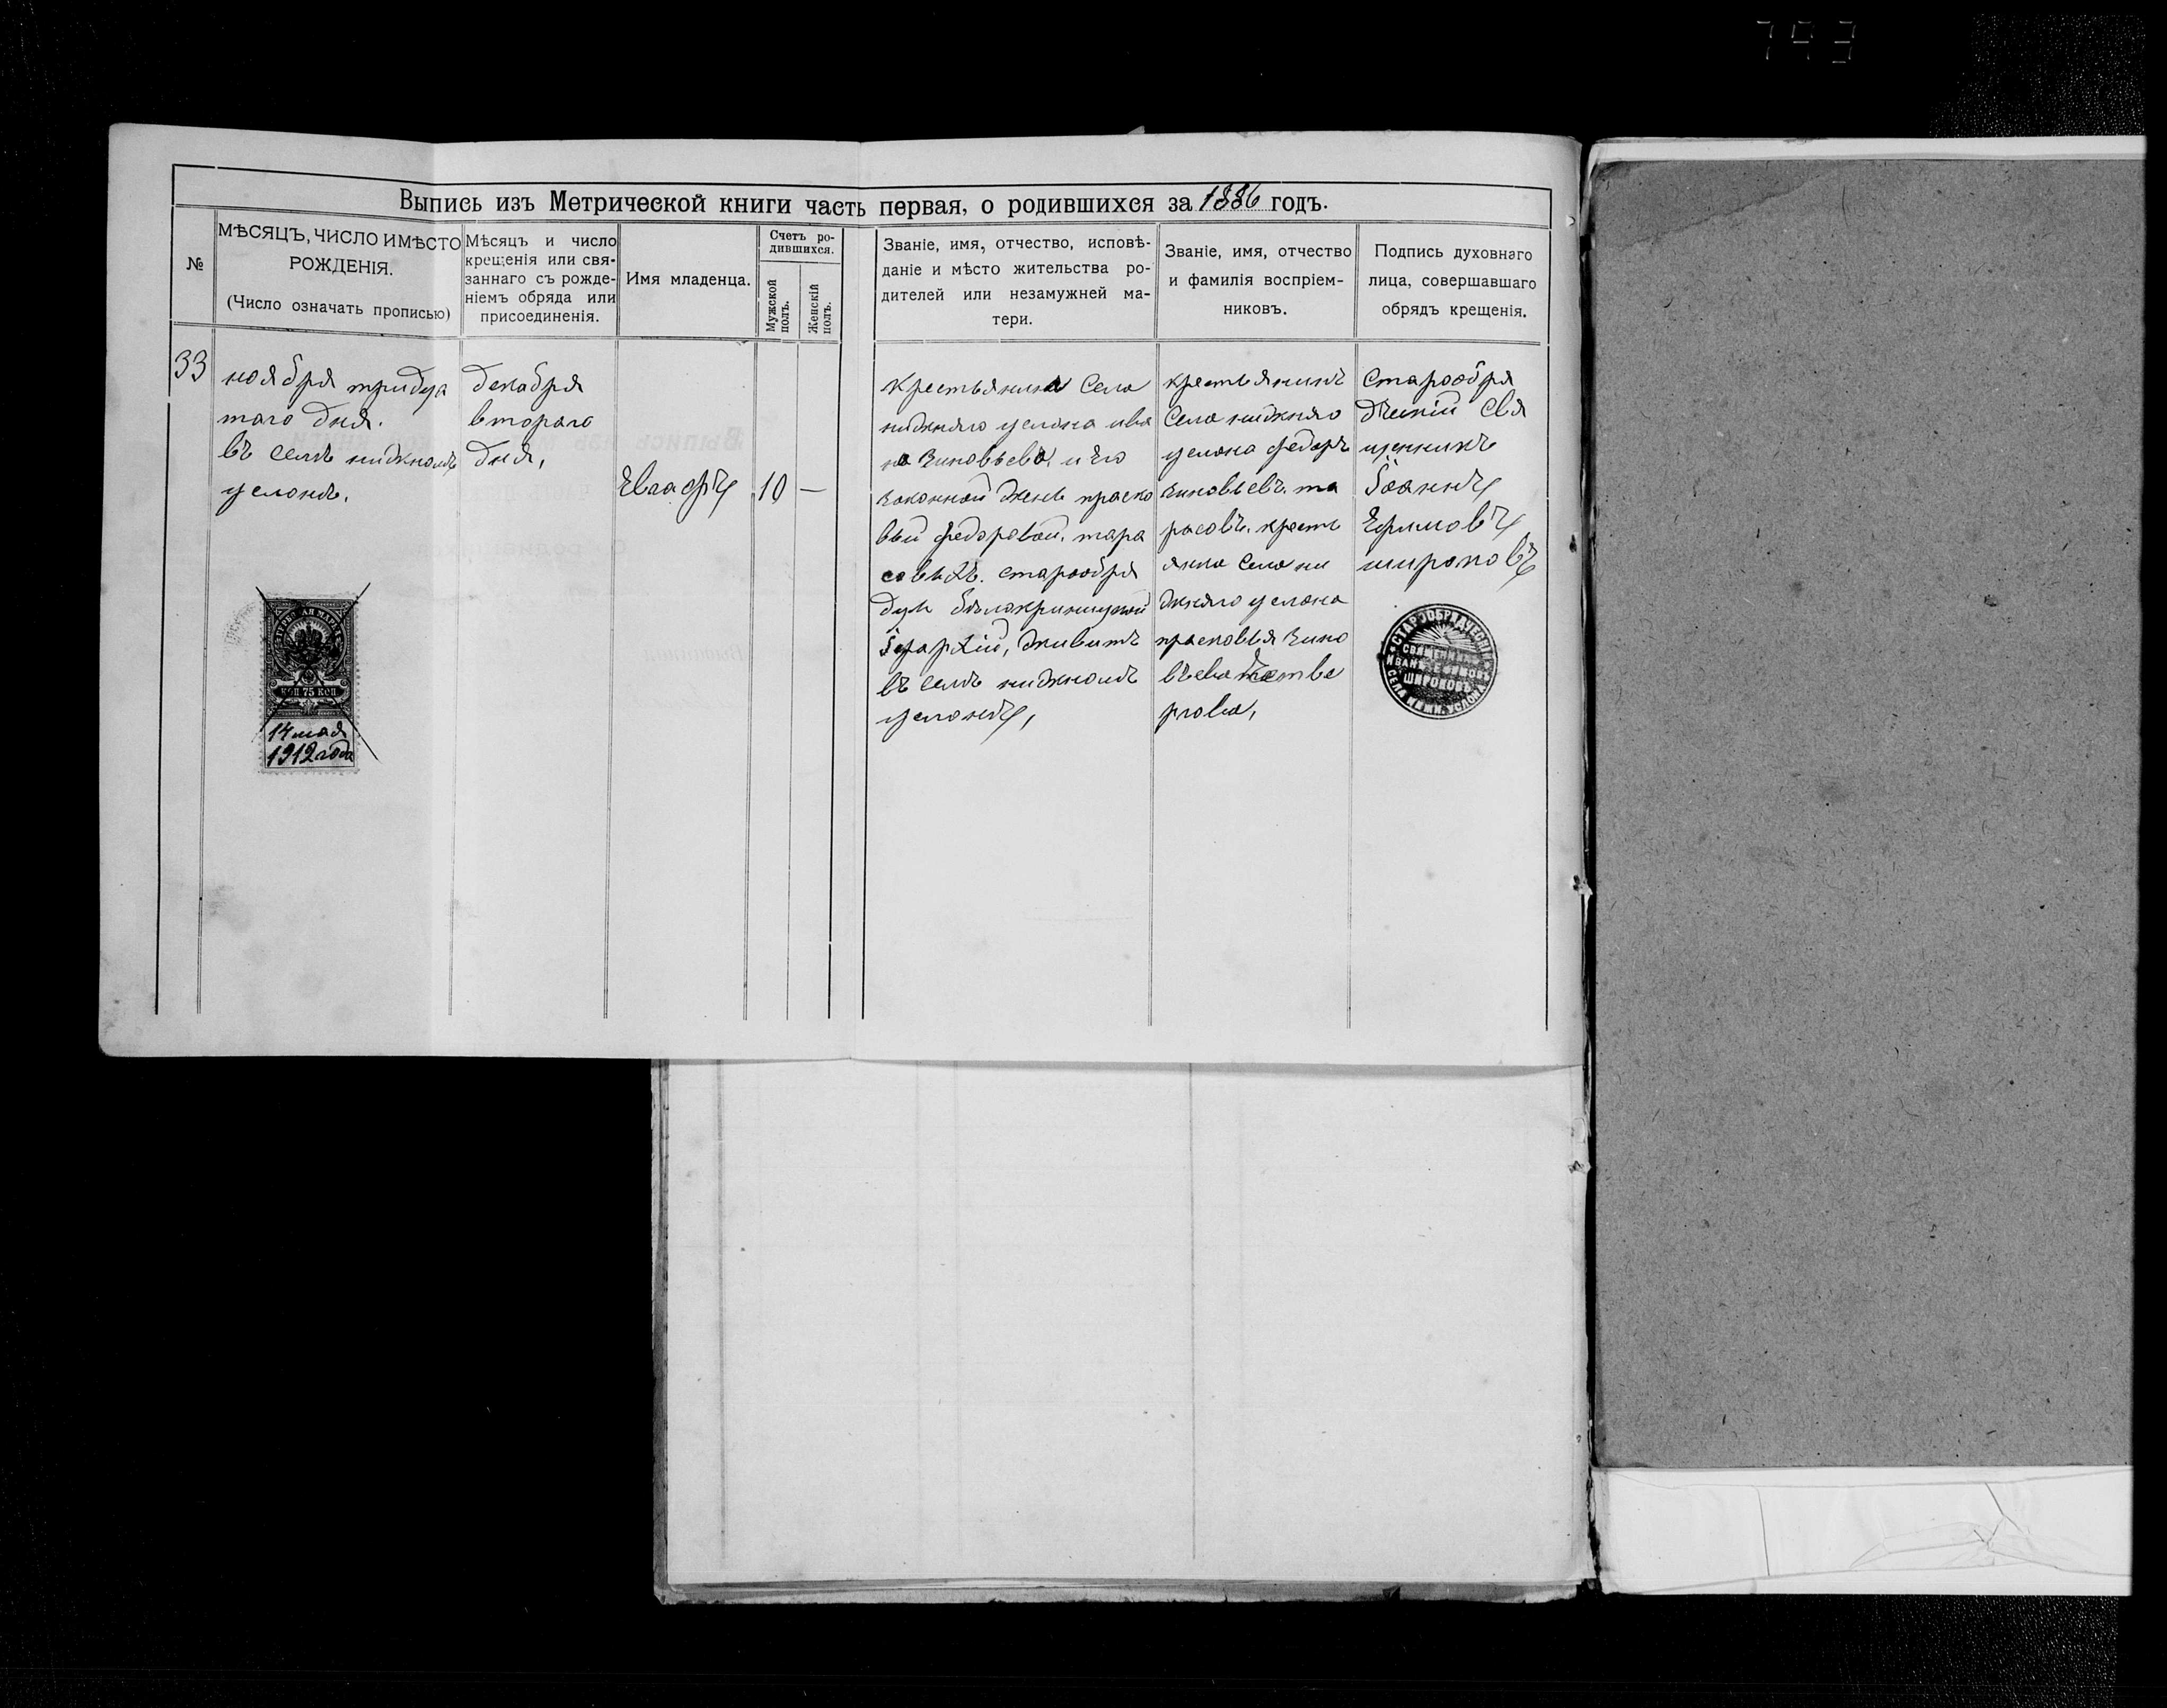 Выпись изъ Метрической книги часть первая, о родившихся за 1886 годъ.
№
МѢСЯЦЪ, ЧИСЛО И МѢСТО
РОЖДЕНІЯ.
(Число означать прописью)
Мѣсяцъ и число
крещенія или свя-
заннаго съ рожде-
ніемъ обряда или
присоединенія.
Имя младенца.
Счетъ ро-
дившихся.
Мужской
полъ.
Женскій
полъ.
Званіе, имя, отчество, исповѣ-
даніе и мѣсто жительства ро-
дителей или незамужней ма-
тери.
Званіе, имя, отчество
и фамилія воспріем-
никовъ.
Подпись духовнаго
лица, совершавшаго
обрядъ крещенія.
33
ноября тридца
таго дня.
въ селѣ нижномъ
услонѣ.
декабря
второго
дня,
Евлафъ
10
—
крестьянина Села
нижняго услона ива
на Зиновьева, и Его
законной жене праско
вьи федоровой. тара
совыхъ. старообря
дцы бѣлокриницкой
Іерархіи, живитъ
въ селѣ нижномъ
услонѣ,
крестьянинъ
Села нижняго
услона федоръ
зиновьевъ. та
расовъ. кресть
янка Села ни
жняго услона
прасковья зино
вьева
ргова,
Старообря
дческій Свя
щенникъ
Іоаннъ
Ефимовъ
широковъ
СТАРООБРЯДЧЕСКІЙ
СВЯЩЕННИКЪ
ИВАНЪ ЕФИМОВ.
ШИРОКОВЪ
СЕЛА НИЖН. УСЛОНА
ГЕРБОВАЯ МАРКА
КОП 75 КОП
14 мая
1912 года
793